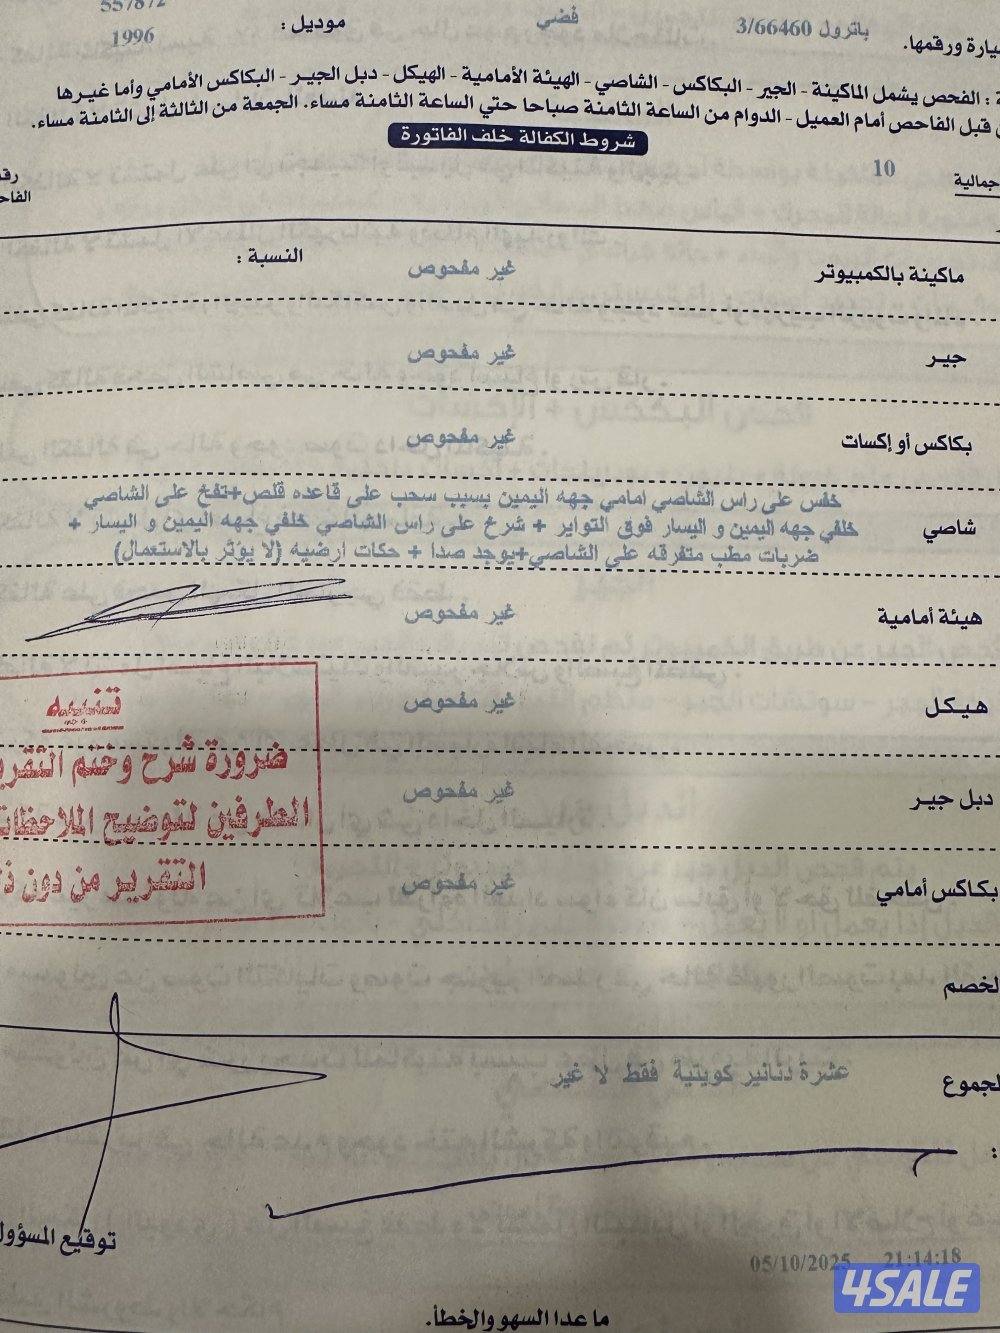 557872
سيارة ورقمها. باترول 3/66460 فضي موديل : 1996
ة : الفحص يشمل الماكينة - الجير - البكاكس - الشاصي - الهيئة الأمامية - الهيكل - دبل الجير - البكاكس الأمامي وأما غيرها
ن قبل الفاحص أمام العميل - الدوام من الساعة الثامنة صباحا حتي الساعة الثامنة مساء. الجمعة من الثالثة إلى الثامنة مساء.
شروط الكفالة خلف الفاتورة
جمالية 10 رقم
الفاح
ماكينة بالكمبيوتر غير مفحوص النسبة :
جير غير مفحوص
بكاكس أو إكسات غير مفحوص
خفس على راس الشاصي امامي جهه اليمين بسبب سحب على قاعده قلص+تفخ على الشاصي
شاصي خلفي جهه اليمين و اليسار فوق التواير + شرخ على راس الشاصي خلفي جهه اليمين و اليسار +
ضربات مطب متفرقه على الشاصي+يوجد صدا + حكات ارضيه (لا يوثر بالاستعمال)
هيئة أمامية غير مفحوص
هيكل غير مفحوص
دبل جير غير مفحوص
بكاكس أمامي غير مفحوص
تنبيه
ضرورة شرح وختم التقرير
الطرفين لتوضيح الملاحظات
التقرير من دون ذ
لخصم
لجموع عشرة دنانير كويتية فقط لا غير
:
توقيع المسؤول
05/10/2025 21:14:18
4SALE
ما عدا السهو والخطأ.